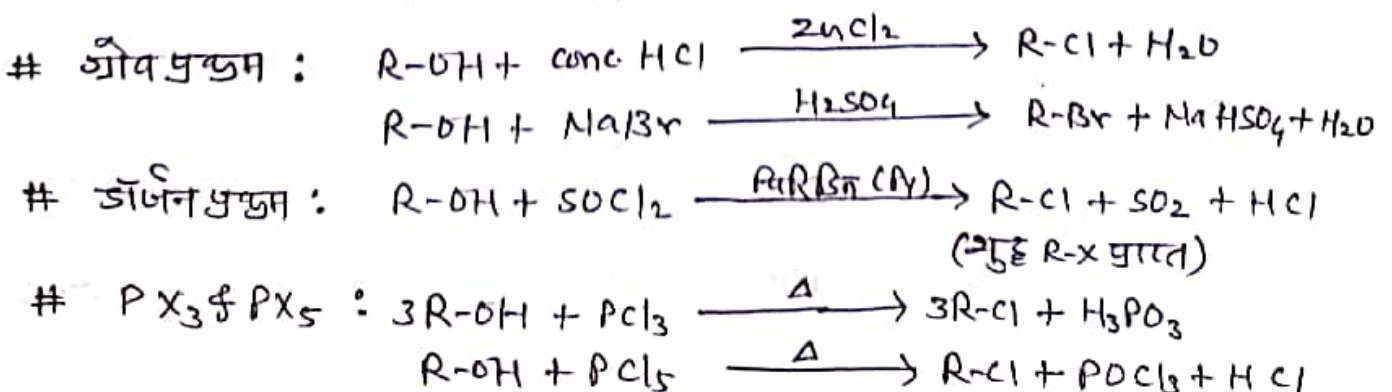 # ग्रोव प्रक्रम : R-OH + conc. HCl ZnCl2 → R-Cl + H2O
R-OH + NaBr H2SO4 → R-Br + NaHSO4 + H2O
# डॉर्जन प्रक्रम : R-OH + SOCl2 पिरिडिन (Py) → R-Cl + SO2 + HCl
(शुद्ध R-X प्राप्त)
# PX3 & PX5 : 3R-OH + PCl3 Δ → 3R-Cl + H3PO3
R-OH + PCl5 Δ → R-Cl + POCl3 + HCl